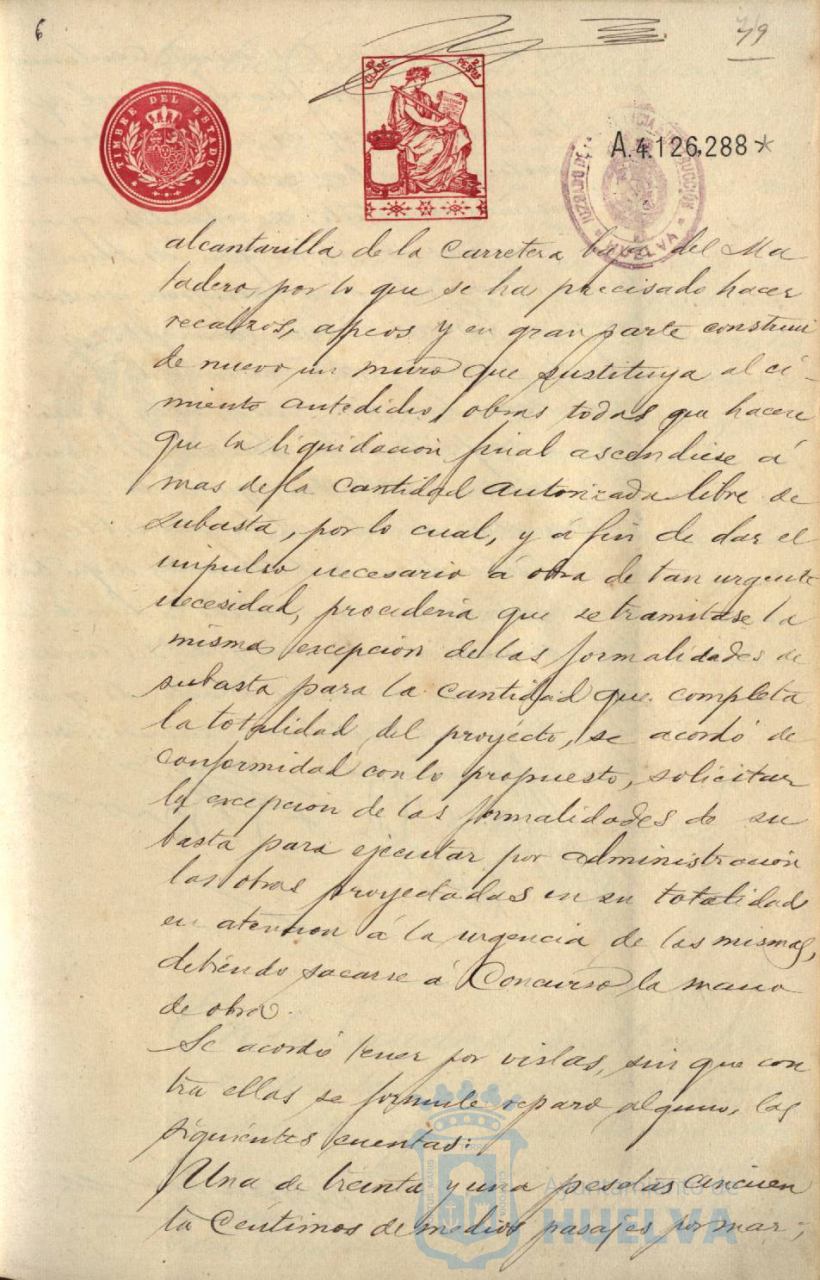 6
7/9
TIMBRE DEL ESTADO
CLASE
PESETAS
A.4.126,288*
HUELVA
alcantarilla de la Carretera del Ma
tadero, por lo que se ha precisado hacer
recalzos, apeos y en gran parte construir
de nuevo un muro que sustituya al ci-
miento antedicho, obras todas que hacen
que la liquidación final ascendiese á
mas de la cantidad autorizada libre de
subasta, por lo cual, y á fin de dar el
impulso necesario á obra de tan urgente
necesidad, procederia que se tramitase la
misma excepción de las formalidades de
subasta para la cantidad que completa
la totalidad del proyecto, se acordó de
conformidad con lo propuesto, solicitar
la excepción de las formalidades de su
basta para ejecutar por administración
las obras proyectadas en su totalidad
en atencion á la urgencia de las mismas,
debiendo sacarse á Concurso la mano
de obra.
Se acordó tener por vistas, sin que con
tra ellas se formule reparo alguno, las
siguientes cuentas:
Una de treinta y una pesetas cincuen
ta Céntimos de medios pasajes por mar;
Ayuntamiento de
HUELVA